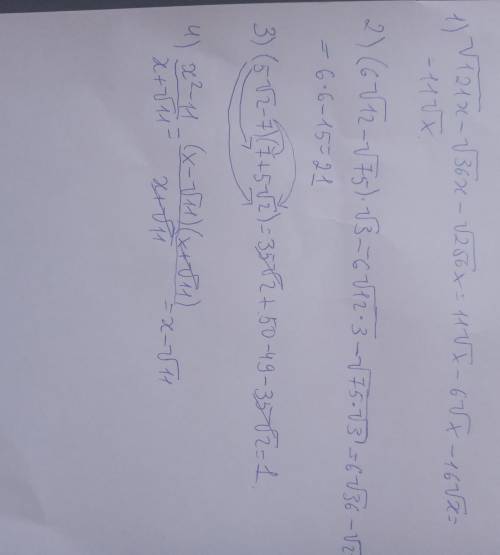 1) √121x - √36x - √256x = 11√x - 6√x - 16√x =
-11√x.
2) (6√12 - √75)·√3 = 6√12·3 - √75·√3 = 6√36 - √2
= 6·6 - 15 = 21
3) (5√2 - 7)(7 + 5√2) = 35√2 + 50 - 49 - 35√2 = 1.
4) x² - 11 / x + √11 = (x - √11)(x + √11) / x + √11 = x - √11